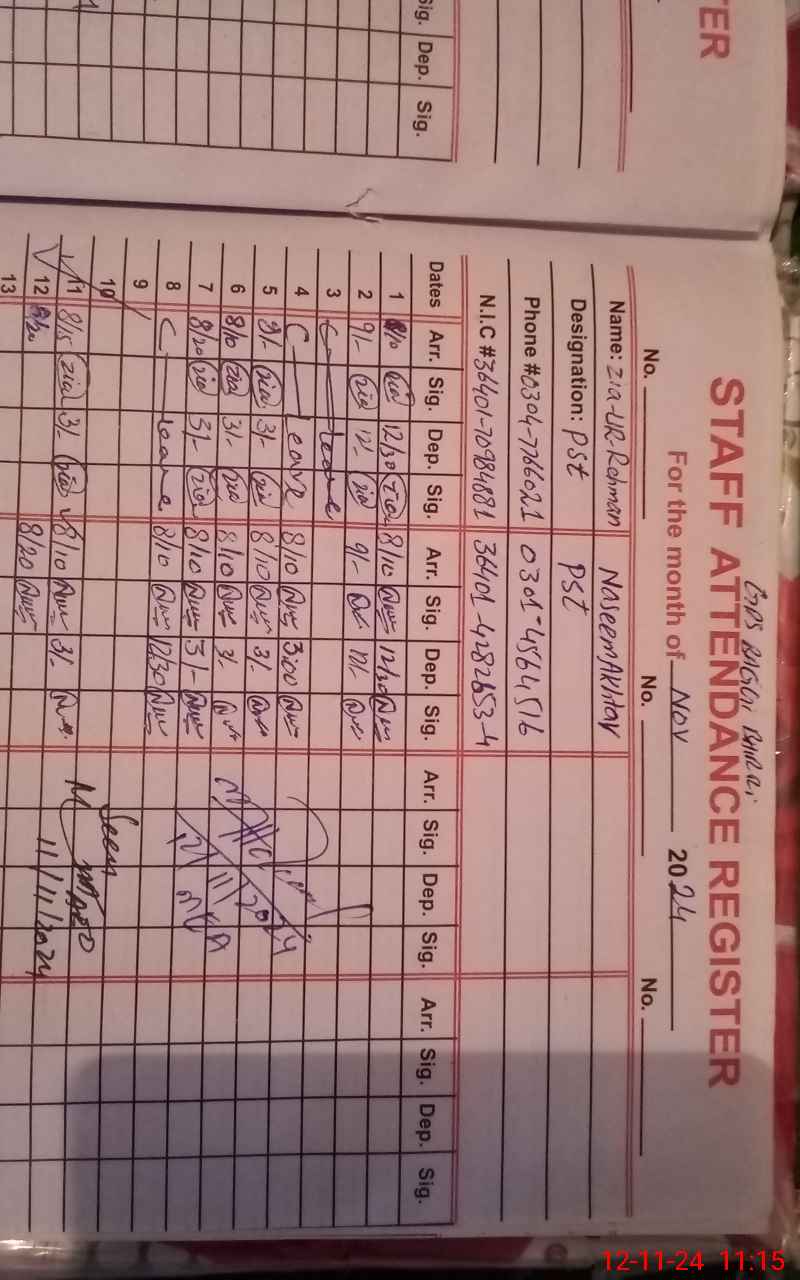 TER
Sig. Dep. Sig.
GPS BAGGI BAHRAI
STAFF ATTENDANCE REGISTER
For the month of Nov 2024
No. No. No.
Name: Zia-UR-Rehman NaseemAkhtar
Designation: PSt PSt
Phone #0304-7766021 0301-4564516
N.I.C #36401-70984681 36401-4282653-4
Dates Arr. Sig. Dep. Sig. Arr. Sig. Dep. Sig. Arr. Sig. Dep. Sig. Arr. Sig. Dep. Sig.
1 8/10 zia 12/30 zia 8/10 12/30
2 9/- zia 12/- zia 9/- 12/-
3 Leave
4 Leave 8/10 3:00
5 9/- zia 3/- zia 8/10 3/-
6 8/10 zia 3/- zia 8/10 3/-
7 8/20 zia 3/- zia 8/10 3/-
8 Leave 8/10 12/30
9
10
11 8/15 zia 3/- zia 8/10 3/-
12 8/20 8/20
13
Seen
11/11/2024
12-11-24 11:15